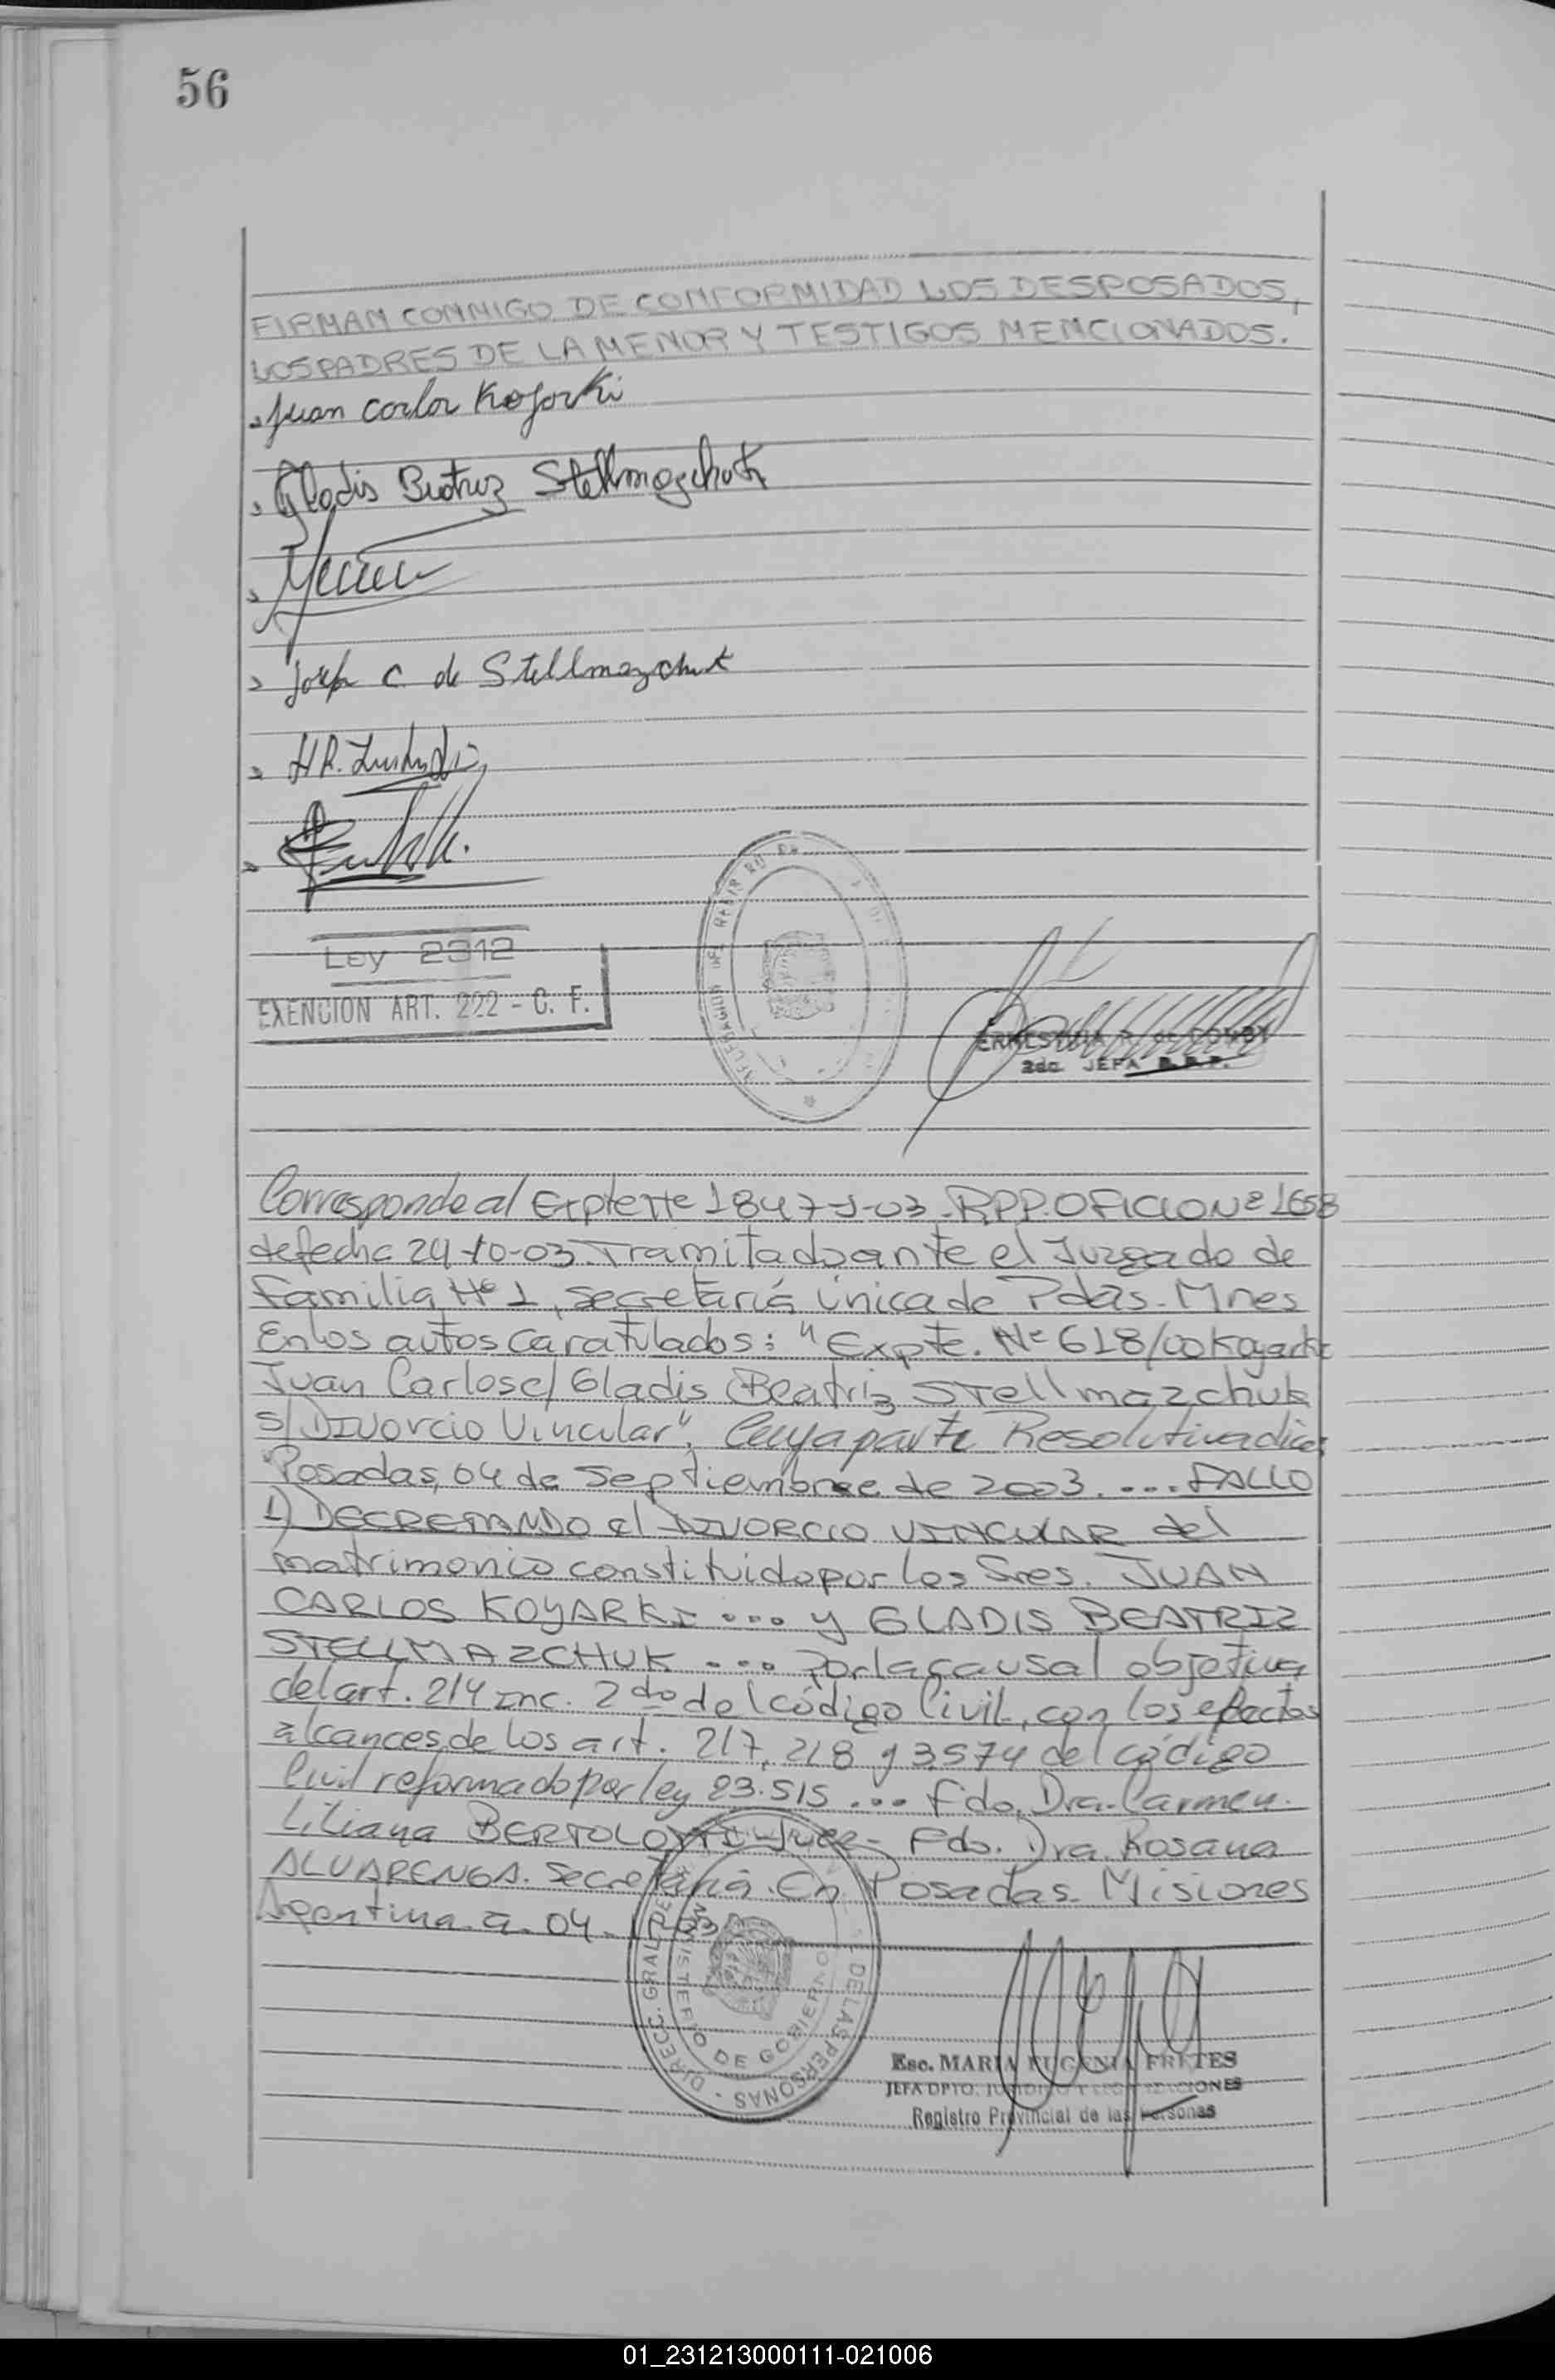 56
FIRMAN CONMIGO DE CONFORMIDAD LOS DESPOSADOS,
LOS PADRES DE LA MENOR Y TESTIGOS MENCIONADOS.
Juan Carlos Koyarki
Gladis Beatriz Stellmazchuk
C. de Stellmazchuk
H R.
Ley 2312
EXENCION ART. 222 - C. F.
ERNESTINA R. de
2da. JEFA R.P.P.
Corresponde al Expte Nº 1847-J-03. R.P.P. OFICIO Nº 1658
de fecha 24-10-03. Tramitado ante el Juzgado de
Familia Nº 1, Secretaría única de Pdas. Mnes
En los autos caratulados: "Expte. Nº 618/00 Koyarki
Juan Carlos c/ Gladis Beatriz Stellmazchuk
s/ Divorcio Vincular", Cuya parte Resolutiva dice:
"Posadas, 04 de Septiembre de 2003. ... FALLO
1) DECRETANDO el DIVORCIO VINCULAR del
matrimonio constituido por los Sres. JUAN
CARLOS KOYARKI ... y GLADIS BEATRIZ
STELLMAZCHUK ... Por la causal objetiva
del art. 214 inc. 2do del código Civil, con los efectos
alcances de los art. 217, 218 y 3.574 del código
Civil reformado por ley 23.515 ... Fdo. Dra. Carmen
Liliana BERTOLOTTI - Juez - Fdo. Dra. Rosana
ALVARENGA. Secretaria. En Posadas. Misiones
Argentina a. 04
DIRECC. GRAL. DE DE LAS PERSONAS
MINISTERIO DE GOBIERNO
Esc. MARIA EUGENIA FRETES
JEFA DPTO.
Registro Provincial de las Personas
01_231213000111-021006